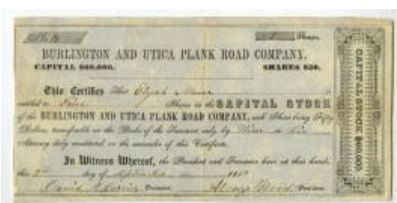 Shares
BURLINGTON AND UTICA PLANK ROAD COMPANY.
CAPITAL $60,000. SHARES $50.
This Certifies That Elijah is
entitled to Shares in the CAPITAL STOCK
of the BURLINGTON AND UTICA PLANK ROAD COMPANY, each Share being Fifty
Dollars, transferable on the Books of the Treasurer only, by or his
Attorney duly constituted, on the surrender of this Certificate.
In Witness Whereof, the President and Treasurer have set their hands,
this 2nd day of September
David Treasurer. Alonzo President.
CAPITAL STOCK $60,000.